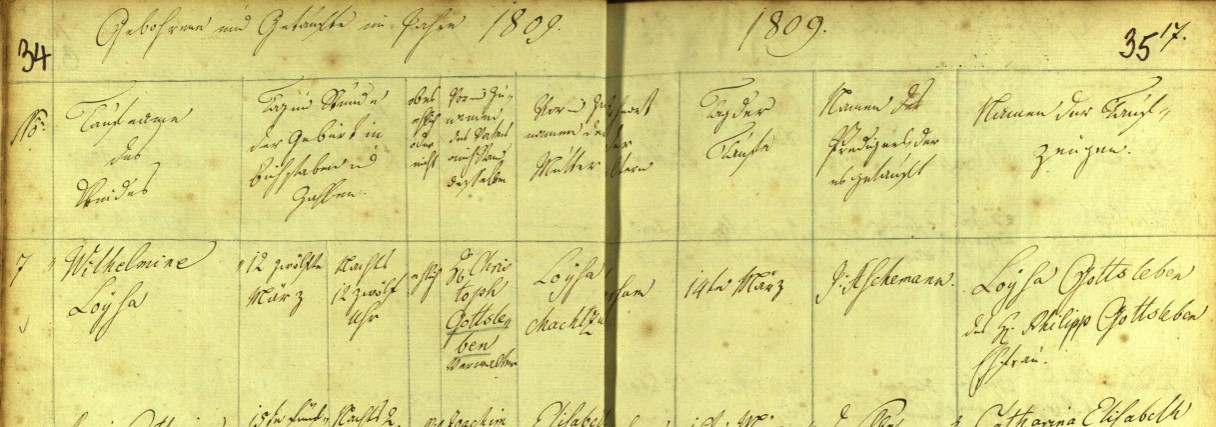 34 Gebohrene und Getaufte im Jahre 1809.
1809.
35 17.
No:
Taufname
des
Kindes
Tag u Stunde
der Geburt in
Buchstaben u
Zahlen.
ob es
ehlich
oder
nicht
Vor u Zu-
namen
des Vaters
desselben
Vor u Zu
namen der
Mutter
Tag der
Taufe
Namen des
Predigers der
es getauft
Namen der Tauf-
zeugen.
7
Wilhelmine
Loÿsa
12 zwölfte
März
Nachts
12 zwölf
Uhr
ehlich
H. Chris
toph
Gottsle
ben
Verwalter
Loÿsa
Machtz
14te März
J. Aschemann.
Loÿsa Gottsleben
des H. Philipp Gottsleben
Ehefrau.
15te fünf Nachts 2
Joachim
Elisabeth
Catharina Elisabeth